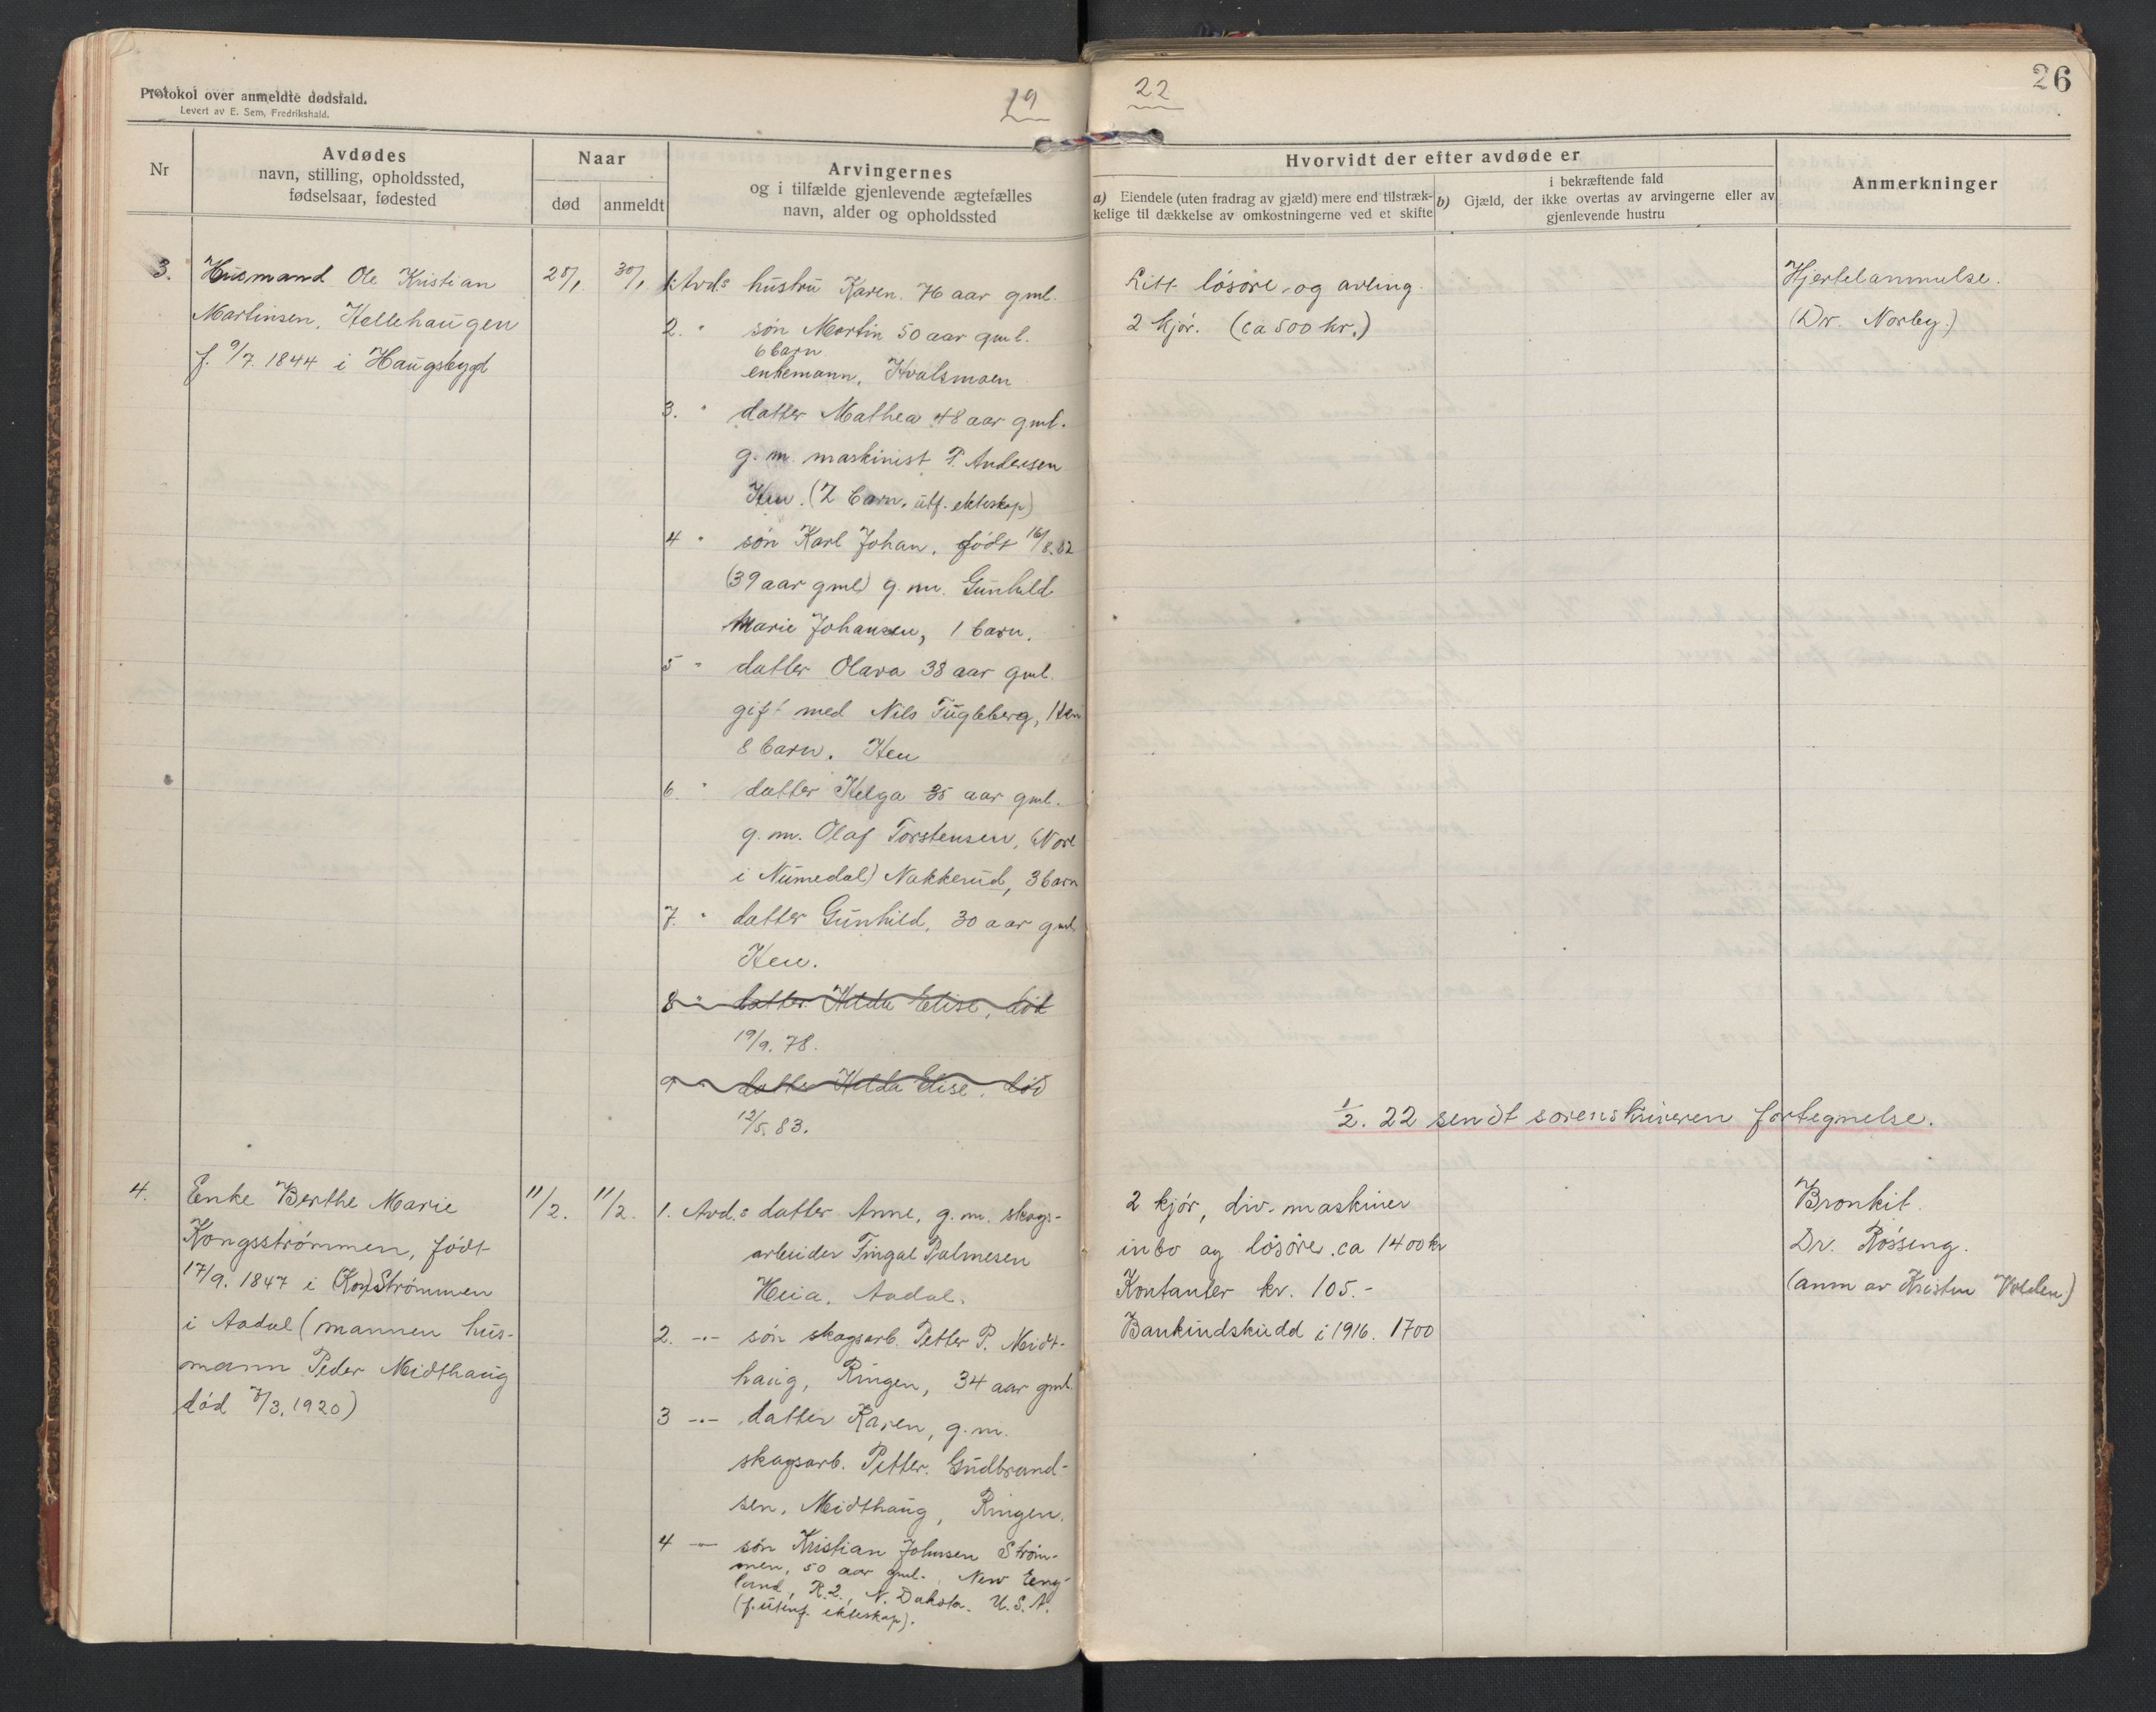 Protokol over anmeldte dødsfald.
Levert av E. Sem, Fredrikshald.
19
22
26
Nr
Avdødes
navn, stilling, opholdssted,
fødselsaar, fødested
Naar
død
anmeldt
Arvingernes
og i tilfælde gjenlevende ægtefælles
navn, alder og opholdssted
Hvorvidt der efter avdøde er
a) Eiendele (uten fradrag av gjæld) mere end tilstræk-
kelige til dækkelse av omkostningerne ved et skifte
i bekræftende fald
b) Gjæld, der ikke overtas av arvingerne eller av
gjenlevende hustru
Anmerkninger
3.
Husmand Ole Kristian
Martinsen, Hellehaugen
f. 9/7. 1844 i Haugsbygd
28/1
30/1
1. Avd.s hustru Karen. 76 aar gml.
2. " søn Martin 50 aar gml.
6 barn
enkemann, Hvalsmoen
3. " datter Mathea 48 aar gml.
g. m. maskinist P. Andersen
Hen. (2 barn. utf. ekteskap)
4 " søn Karl Johan, født 16/8.82
(39 aar gml) g. m. Gunhild
Marie Johansen, 1 barn.
5 " datter Olava 38 aar gml.
gift med Nils Fugleberg, Hen
8 barn. Hen
6. " datter Helga 35 aar gml.
g. m. Olaf Torstensen, (Nore
i Numedal) Nakkerud, 3 barn
7. " datter Gunhild, 30 aar gml
Hen.
8 " datter Hilda Elise, død
19/9. 78.
9 " datter Hilda Elise. død
12/5. 83.
Litt løsøre og avling.
2 kjør. (ca 500 kr.)
Hjertelammelse.
(Dr. Norby.)
1/2. 22 sendt sorenskriveren fortegnelse.
4.
Enke Berthe Marie
Kongsstrømmen, født
17/9. 1847 i (Kon)Strømmen
i Aadal (mannen hus-
mann Peder Midthaug
død 7/3. 1920)
11/2.
11/2.
1. Avd.s datter Anne, g. m. skogs-
arbeider Fingal Palmesen
Heia. Aadal.
2. -"- søn skogsarb. Petter P. Midt-
haug, Ringen, 34 aar gml.
3 -"- datter Karen, g. m.
skogsarb. Petter Gudbrand-
sen, Midthaug, Ringen.
4 -"- søn Kristian Johnsen Strøm-
men, 50 aar gml., New Eng-
land, R. 2., N. Dakota. U. S. A.
(f. utenf. ekteskap).
2 kjør, div. maskiner
inbo og løsøre, ca 1400 kr
Kontanter kr. 105.-
Bankindskudd i 1916. 1700
Bronkit.
Dr. Røsseng.
(anm av Kristen Volden)